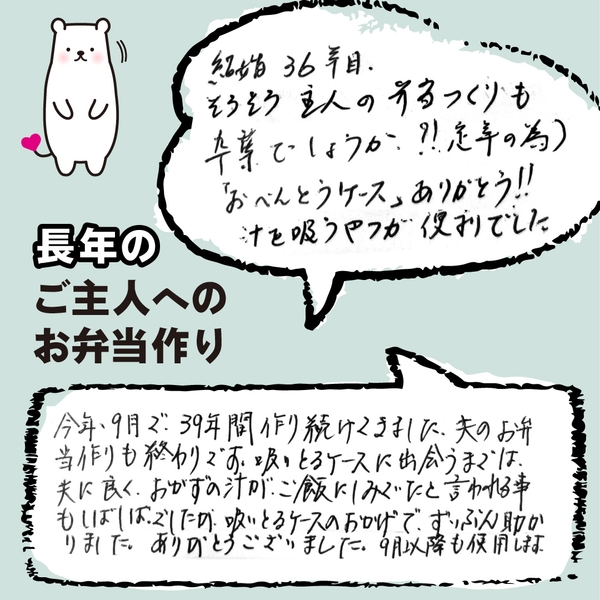 結婚 36年目.
そろそろ 主人の 弁当つくりも
卒業でしょうか. ?!(定年の為)
「おべんとうケース」ありがとう!!
汁を吸うやつが 便利でした
長年の
ご主人への
お弁当作り
今年、9月で、39年間作り続けてきました。夫のお弁
当作りも終わりです。吸いとるケースに出会うまでは、
夫に良く、おかずの汁が、ご飯にしみでたと言われる事
もしばしばでしたが、吸いとるケースのおかげで、ずいぶん助か
りました。ありがとうございました。9月以降も使用します